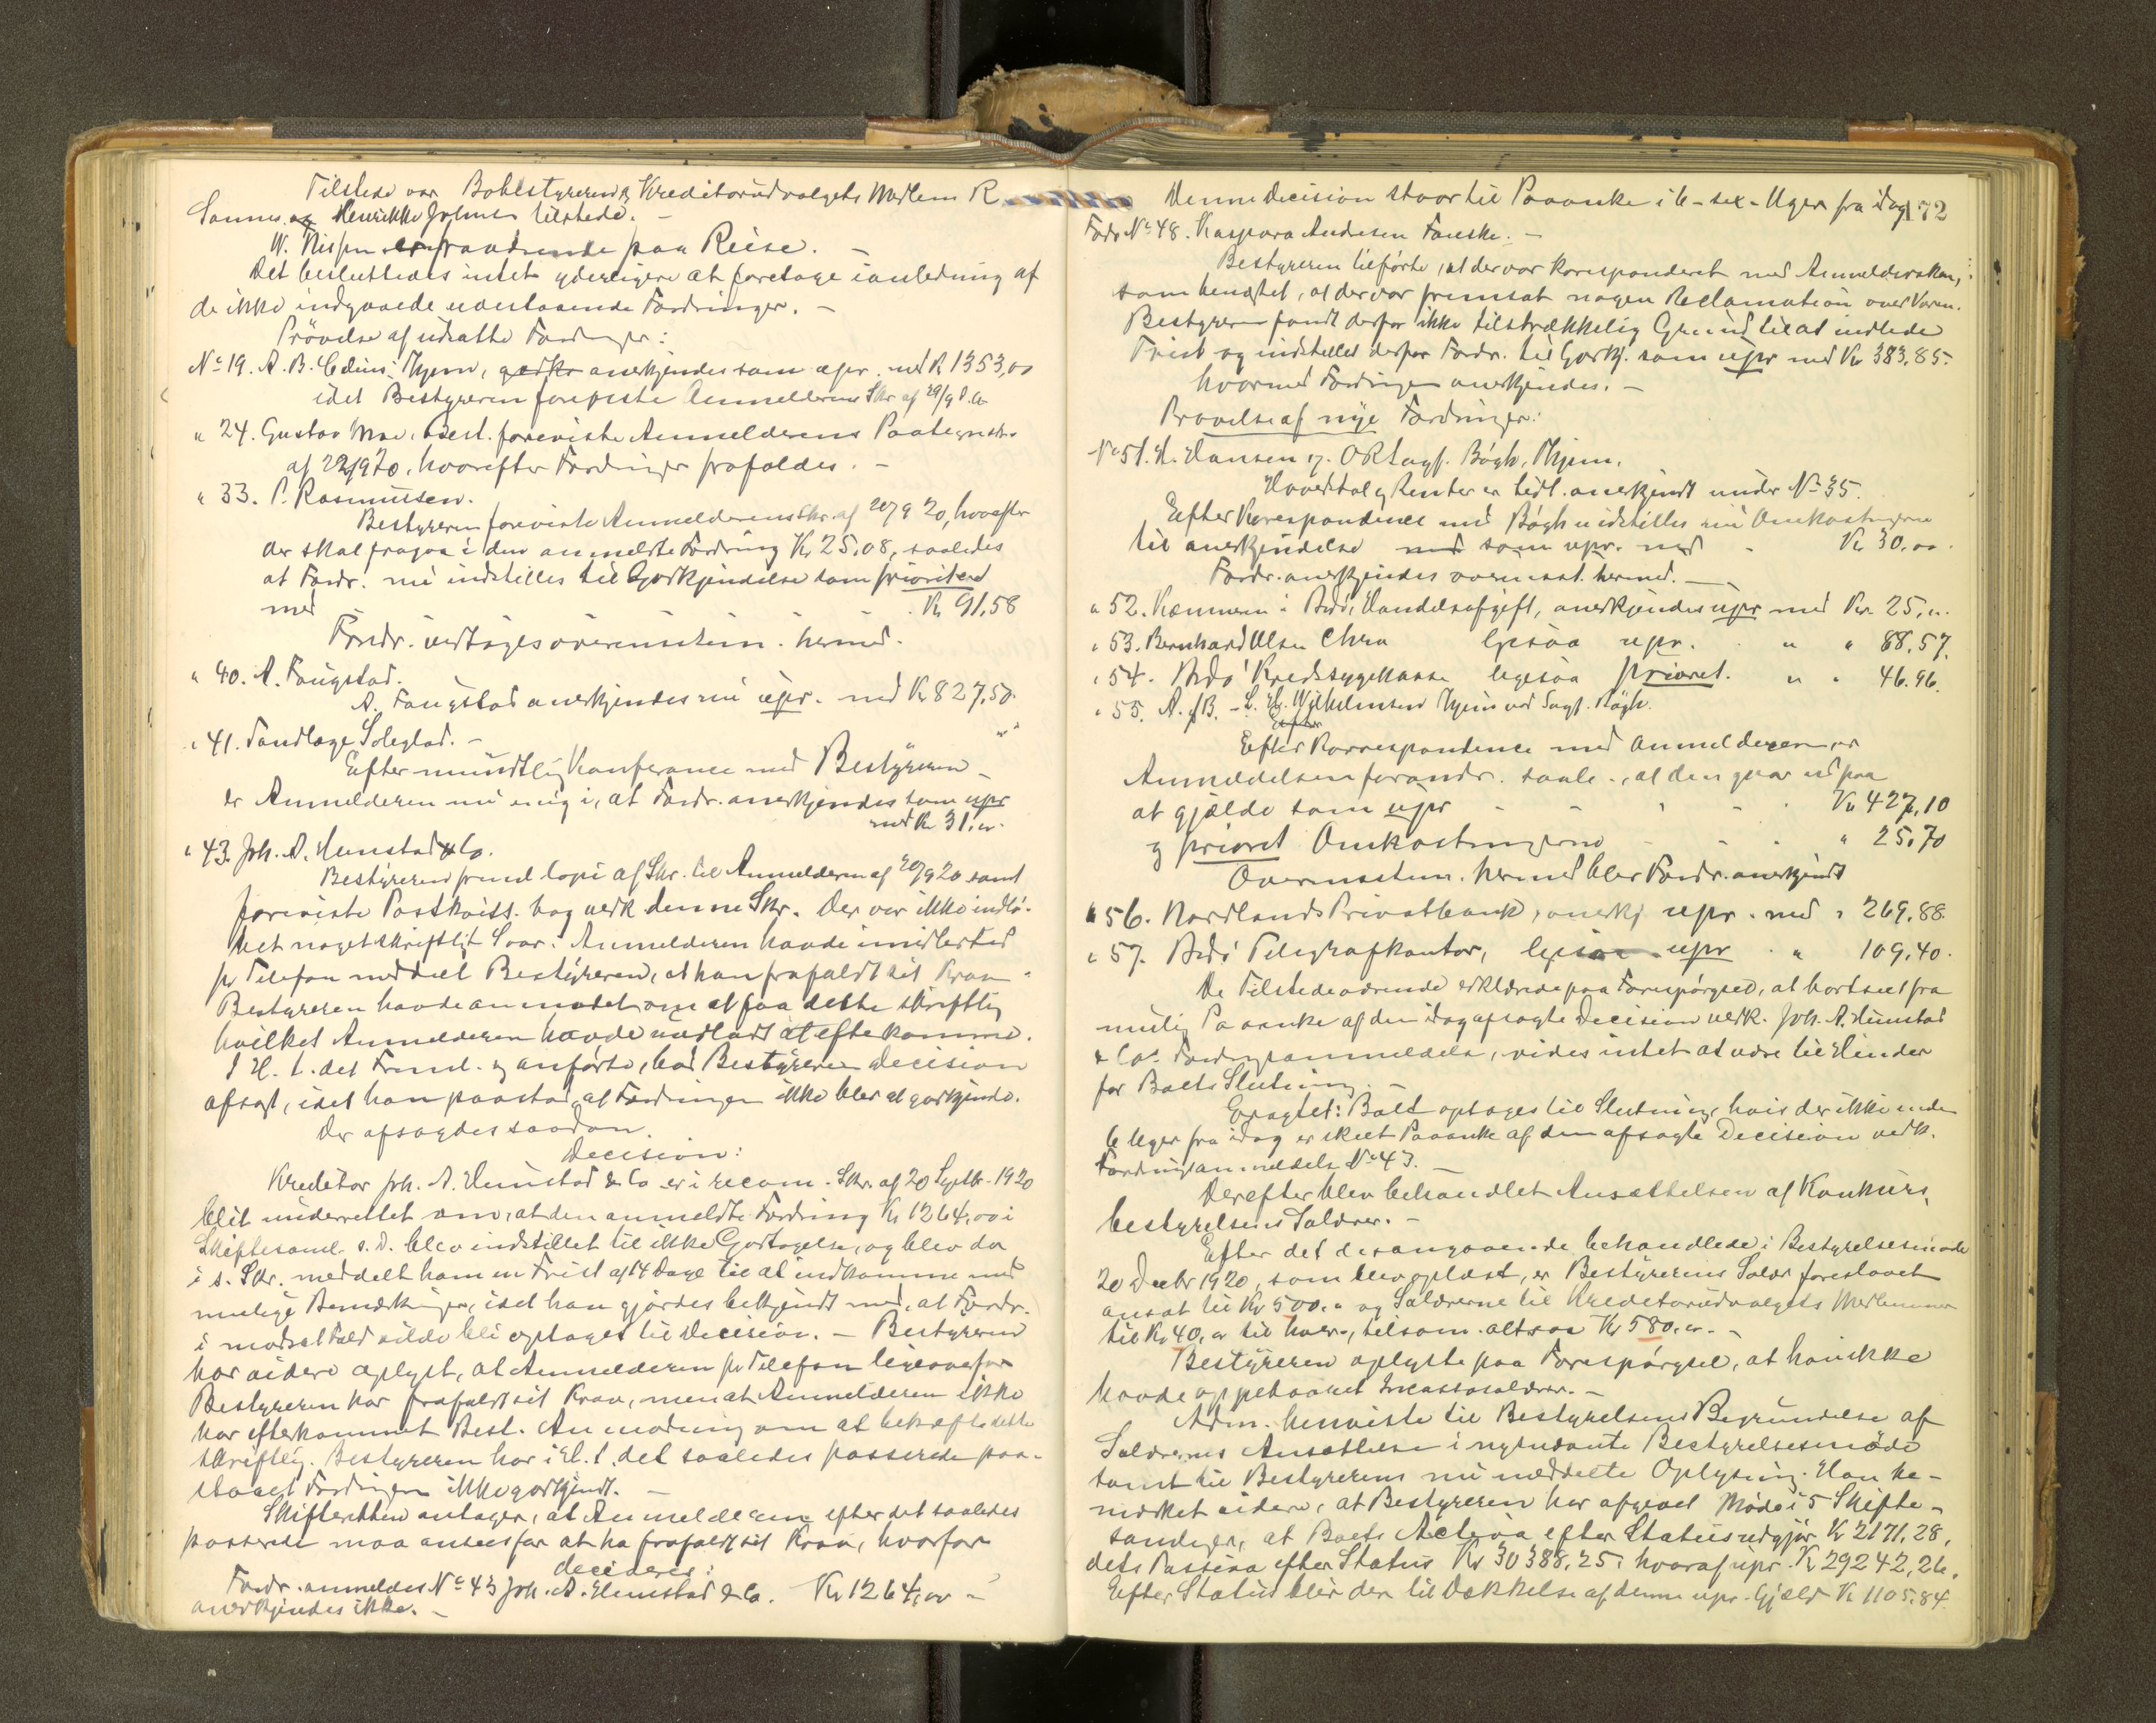 Tilstede var Bobestyreren, Kreditorudvalgets Medlem R
Sannes og Henrikke Johnsen tilstede. –
W. Nissen er fraværende paa Reise. –
Det besluttedes intet yderligere at foretage i anledning af
de ikke indgaaede udestaaende Fordringer. –
Prøvelse af udsatte Fordringer:
No 19. A. B. Thjem, godkj anerkjendes som upr. med K 1353,00
idet Bestyreren foreviste Anmelderens Skr af 29/9 d.a.
" 24. Gustav Moe, Best. foreviste Anmelderens
af 22/9 20, hvorefter Fordringen frafaldes. –
" 33. P. Rasmussen.
Bestyreren foreviste Anmelderens Skr. af 20/9 20, hvorefter
der skal fragaa i den anmeldte Fordring Kr 25,08, saaledes
at Fordr. nu indstilles til Godkjendelse som prioritered
med Kr 91,58
Fordr. vedtages overensstem. hermed.
" 40. A. Faugstad.
A. Faugstad anerkjendes nu upr. med Kr 827,50.
" 41. Tandlæge Soleglad. –
Efter mundtlig Konferance med Bestyreren
er Anmelderen nu enig i, at Fordr. anerkjendes som upr
med Kr 31,00.
" 43. Joh. A. Hunstad & Co.
Bestyreren freml. Copi af Skr. til Anmelderen af 20/9 20 samt
foreviste Postkvitt. bog vedk denne Skr. Der var ikke indlø-
bet noget skriftligt Svar. Anmelderen havde imidlertid
pr Telefon meddelt Bestyreren, at han frafaldt sit Krav.
Bestyreren havde anmodet om at faa dette skriftlig
hvilket Anmelderen havde undladt at efterkomme.
I H. t. det Freml. og anførte, bad Bestyreren Decision
afsagt, idet han paastod, at Fordringen ikke blev at godkjende.
Der afsagdes saadan
Decision:
Kreditor Joh. A. Hunstad & Co er i recom. Skr. af 20 Septbr. 1920
blit underrettet om, at den anmeldte Fordring Kr 1264,00 i
Skiftesaml. s. D. blev indstillet til ikke Godtagelse, og blev der
i s. Skr. meddelt ham en Frist af 14 Dage til at indkomme med
mulige Bemærkninger, idet han gjordes bekjendt med, at Fordr.
i modsat Fald vilde bli optaget til Decision. – Bestyreren
har videre oplyst, at Anmelderen pr Telefon ligeoverfor
Bestyreren har frafaldt sit Krav, men at Anmelderen ikke
har efterkommet Best. Anmodning om at bekræfte dette
skriftlig. Bestyreren har i H. t. det saaledes passerede paa-
staaet Fordringen ikke godkjendt. –
Skifteretten antager, at Anmelderen efter det saaledes
passerede maa ansees for at ha frafaldt sit Krav, hvorfor
decideres:
Fordr. anmeldes No 43 Joh. A. Hunstad & Co. Kr 1264,00 –
anerkjendes ikke. –
172
Denne Decision staar til Paaanke i 6 – sex – Uger fra idag
Fordr No 48. Kaspara Andersen Fauske. –
Bestyreren tilførte, at der var korresponderet med Anmeldersken,
som benægtet, at der var fremsat nogen Reclamation over Varen.
Bestyreren fandt derfor ikke tilstrækkelig Grund til at indlede
Tvist og indstillet derfor Fordr. til Godkj. som upr med Kr 383,85.
hvormed Fordringen anerkjendes. –
Prøvelse af nye Fordringer:
No 51. H. Hansen v. ORSagf. Bøgh, Thjem.
Hovedstol og Renter er tidl. anerkjendt under No 35.
Efter Korrespondence med Bøgh indstilles nu Omkostningerne
til anerkjendelse med som upr. med - Kr 30,00.
Fordr. anerkjendes overensst. hermed. –
" 52. Kæmneren i Bodø, Handelsafgift, anerkjendes upr med Kr. 25,00.
" 53. Bernhard Olsen Chra ligesaa upr. " " 88,57.
" 54. Bodø Kredssygekasse ligesaa prioret. " " 46.96.
" 55. A./B. – L. Hj. Wilhelmsen Thjem ved Sagf. Bøgh.
Efter
Efter Korrespondence med Anmelderen er
Anmeldelsen forandr. saal., at den gaar ud paa
at gjælde som upr - - - - Kr 427,10
og prioret Omkostningerne - - - " 25,70
Overensstem. hermed blev Fordr. anerkjendt
" 56. Nordlands Privatbank, anerkj upr. med " 269,88.
" 57. Bodø Telegrafkontor, ligesaa upr . " 109,40.
De Tilstedeværende erklærede paa Forespørgsel, at bortseet fra
mulig Paaanke af den idag afsagte Decision vedk. Joh. A. Hunstad
& Co's Fordringsanmeldelse, vides intet at være til Hinder
for Boets Slutning. –
Eragtet: Boet optages til Slutning, hvis der ikke inden
6 Uger fra idag er skeet Paaanke af den afsagte Decision vedk.
Fordringsanmeldelse No 43. –
Derefter blev behandlet Ansættelsen af Konkurs-
bestyrelsens Salærer. –
Efter det desangaaende behandlede i Bestyrelsesmøde
20 Decbr 1920, som blev oplæst, er Bestyrerens Salær foreslaaet
ansat til Kr 500,00 og Salærerne til Kreditorudvalgets Medlemmer
til Kr 40,00 til hver, tilsam. altsaa Kr 580,00. –
Bestyreren oplyste paa Forespørgsel, at han ikke
havde oppebaaret Incassosalærer. –
Adm. henviste til Bestyrelsens Begrundelse af
Salærernes Ansættelse i nysnævnte Bestyrelsesmøde
samt til Bestyrerens nu meddelte Oplysning. Han be-
mærket videre, at Bestyreren har afgivet Møde i 5 Skifte-
samlinger, at Boets Activa efter Status udgjør Kr 2171,28,
dets Passiva efter Status Kr 30388,25, hvoraf upr. Kr 29242,26.
Efter Status blir der til Dækkelse af denne upr. Gjæld Kr 1105,84